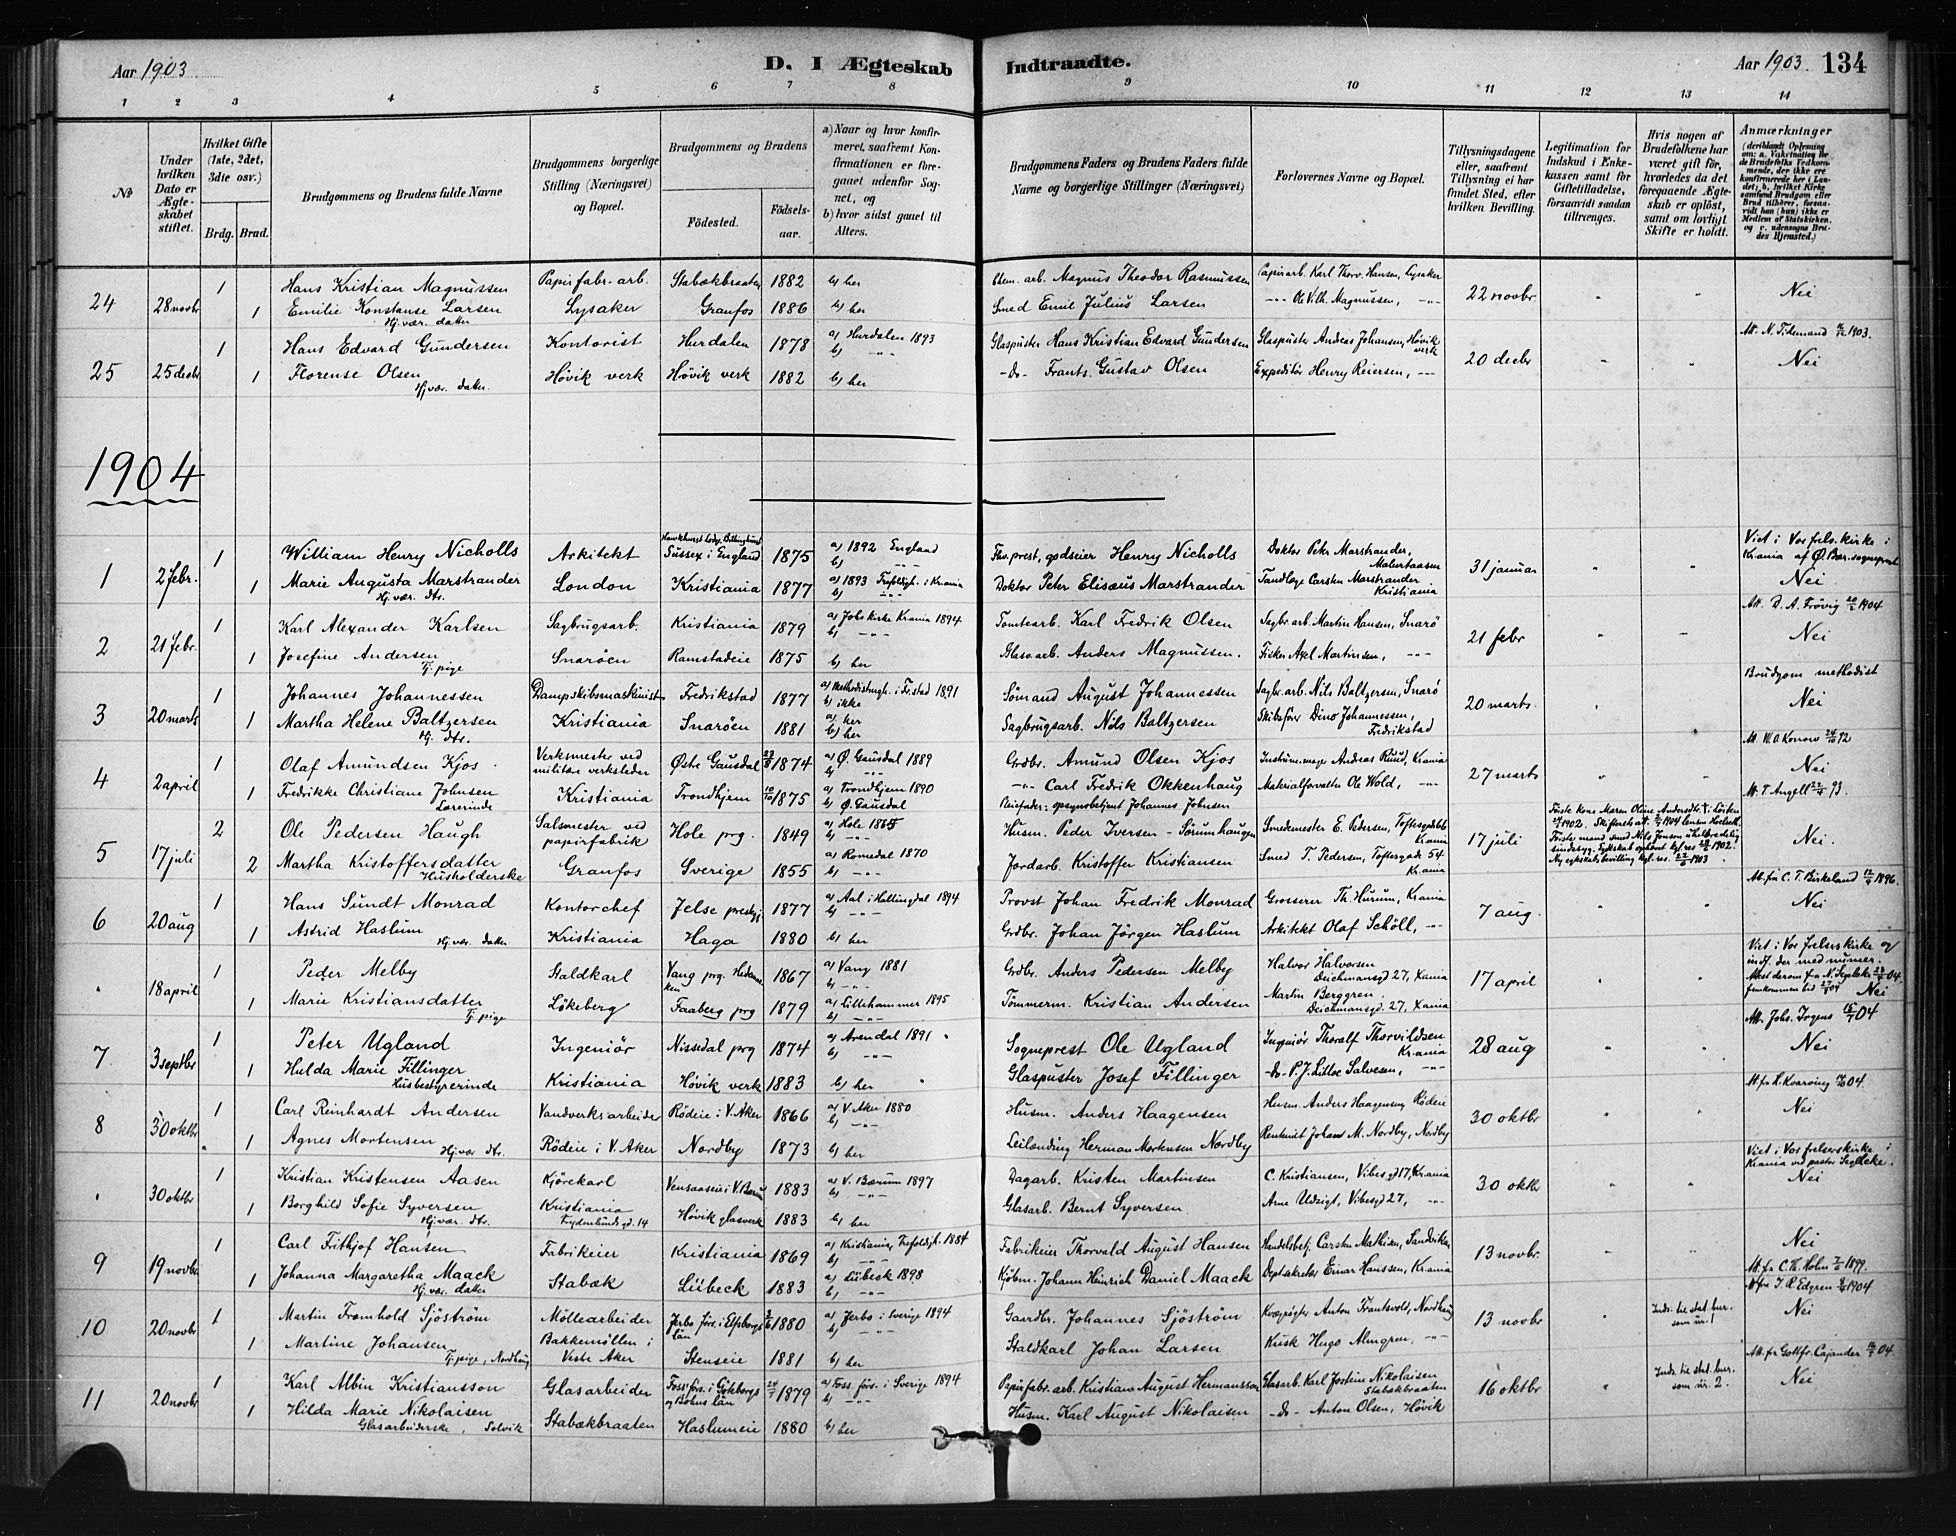 Aar 1903
D. I Ægteskab Indtraadte.
Aar 1903. 134
1 2 3 4 5 6 7 8 9 10 11 12 13 14
No
Under hvilken Dato er Ægteskabet stiftet.
Hvilket Gifte (1ste, 2det, 3die osv.)
Brdg. Brud.
Brudgommens og Brudens fulde Navne
Brudgommens borgerlige Stilling (Næringsvei) og Bopæl.
Brudgommens og Brudens
Fødested.
Fødselsaar.
a) Naar og hvor konfirmeret, saafremt Konfirmationen er foregaaet udenfor Sognet, og
b) hvor sidst gaaet til Alters.
Brudgommens Faders og Brudens Faders fulde Navne og borgerlige Stillinger (Næringsvei)
Forlovernes Navne og Bopæl.
Tillysningsdagene eller, saafremt Tillysning ei har fundet Sted, efter hvilken Bevilling.
Legitimation for Indskud i Enkekassen samt for Giftetilladelse, forsaavidt saadan tiltrænges.
Hvis nogen af Brudefolkene har været gift før, hvorledes da det foregaaende Ægteskab er opløst, samt om lovligt Skifte er holdt.
Anmærkninger (deriblandt Oplysning om: a. Vakcination for de Brudefolks Vedkommende, der ikke ere konfirmerede her i Landet; b. hvilket Kirkesamfund Brudgom eller Brud tilhører, forsaavidt han (hun) ikke er Medlem af Statskirken, og c. udensogns Brudes Hjemsted.)
24 28 novbr 1 Hans Kristian Magnussen Papirfabr. arb. Stabækbraaten 1882 b) her Magnus Theodor Rasmussen Papirarb. Karl Thorv. Hansen, Lysaker 22 novbr Nei
1 Emilie Konstanse Larsen Lysaker Granfos 1886 b) her Smed Emil Julius Larsen Ole Vilh. Magnussen, -"-
Hj. vær. datter
25 25 decbr 1 Hans Edvard Gundersen Kontorist Hurdalen 1878 a) Hurdalen 1893 b) -"- Glaspuster Hans Kristian Edvard Gundersen Glaspuster Andreas Johansen, Høvik verk 20 decbr Att. N. Tidemand 1903. Nei
1 Florense Olsen Høvik verk Høvik verk 1882 b) her -do- Frants Gustav Olsen Expeditør Henry Reiersen, -"-
Hj. vær. datter
1904
1 2 febr. 1 William Henry Nicholls Arkitekt Sussex i England 1875 a) 1892 England b) -"- Fhv. prest, godseier Henry Nicholls Doktor Peter Marstrander, 31 januar Viet i Vor frels. kirke i Krania af Ø. Bær. sogneprest Nei
1 Marie Augusta Marstrander London Kristiania 1877 a) 1893 Trefoldigh. i Krania b) -"- Doktor Peter Elisæus Marstrander Tandlæge Carsten Marstrander Kristiania
Hj. vær. dtr.
2 21 febr. 1 Karl Alexander Karlsen Sagbrugsarb. Kristiania 1879 a) Jobs kirke Krania 1894 b) -"- Tomtearb. Karl Fredrik Olsen Sagbr. arb. Martin Hansen, Snarø 21 febr Att. D. A. Frøvig 1904 Nei
1 Josefine Andersen Snarøen Ramstadeie 1875 b) her Glasarb. Anders Magnussen. Fisker Axel Martinsen, -"-
Tj. pige
3 20 marts 1 Johannes Johannessen Dampskibsmaskinist Fredrikstad 1877 a) Methodistmgh. i F.stad 1891 b) ikke Sømand August Johannessen Sagbr. arb. Nils Baltzersen, Snarø 20 marts. Brudgom methodist Nei
1 Martha Helene Baltzersen Kristiania Snarøen 1881 a) her b) her Sagbrugsarb. Nils Baltzersen Skibsfører Dino Johannessen, Fredrikstad
Hj. dtr.
4 2 april 1 Olaf Amundsen Kjos Verksmester ved militær verksteder Østre Gausdal 1874 a) Ø. Gausdal 1889 b) -"- Grdbr. Amund Olsen Kjos Instrum. mager Andreas Ruud, Krania 27 marts Att. W. O. Konow 92 Nei
1 Fredrikke Christiane Johnsen Kristiania Trondhjem 1875 a) Trondhjem 1890 b) Ø. Gausdal -"- Carl Fredrik Okkenhaug Materialforvalter Ole Wold, -"- Att. T. Angell 93.
Lærerinde Pleiefader: opsynsbetjent Johannes Johnsen
5 17 juli 2 Ole Pedersen Haugh Salsmester ved papirfabrik Hole prg. 1849 a) Hole 1865 b) -"- Husm. Peder Iversen - Sørumhaugen Smedemester E. Pedersen, Toftesgd Krania 17 juli Første kone Maren Oline Andersdtr. 1902. Nei
2 Martha Kristoffersdatter Granfos Sverige 1855 a) Romedal 1870 b) -"- Jordarb. Kristoffer Kristiansen Smed T. Pedersen, Toftesgade 54 Krania Første mand smed Nils Jonson uhelbredelig sindssyg. Egteskab ophævet kgl. res. 1902. Ny egteskabsbevilling kgl. res. 1903
Husholderske
6 20 aug 1 Hans Sundt Monrad Kontorchef Jelse prestgj. 1877 a) Aal i Hallingdal 1894 b) -"- Provst Johan Fredrik Monrad Grosserer Th. Hurum, Krania 7 aug. Att. fra C. T. Birkeland 1896. Nei
1 Astrid Haslum Kristiania Haga 1880 b) her Grdbr. Johan Jørgen Haslum Arkitekt Olaf Schöll, -"-
Hj. vær. datter
" 18 april 1 Peder Melby Staldkarl Vang prg. Hedemarken 1867 a) Vang 1881 b) -"- Grdbr. Anders Pedersen Melby Halvor Halvorsen Deichmansgd 27, Xania 17 april Viet i Vor frelserskirke og indf. der med numer. Nei
1 Marie Kristiansdatter Løkeberg Faaberg prg 1879 a) Lillehammer 1895 b) -"- Tømmerm. Kristian Andersen Martin Berggren, Deichmansgd. 27, Xania
Tj. pige
7 3 septbr 1 Peter Ugland Ingeniør Nissedal prg 1874 a) Arendal 1891 b) -"- Sogneprest Ole Ugland Ingeniør Thoralf Thorvildsen Krania 28 aug Att. Johs. Irgens 04 Nei
1 Hulda Marie Fillinger Kristiania Høvik verk 1883 b) her Glaspuster Josef Fillinger -do- P. J. Ditloe Salvesen, -"-
Husbestyrerinde
8 30 oktbr 1 Carl Reinhardt Andersen Vandverksarbeider Rødeie i V. Aker 1866 a) V. Aker 1880 b) -"- Husm. Anders Haagensen Husm. Anders Haagensen, Rødeie 30 oktbr Att. fra H. Kvarøing 04. Nei
1 Agnes Mortensen Rødeie i V. Aker Nordby 1873 b) her Leilænding Herman Mortensen Nordby Johans M. Nordby, Nordby
Hj. vær dtr.
" 30 oktbr 1 Kristian Kristensen Aasen Kjørekarl Vensaaseie i V. Bærum 1883 a) V. Bærum 1897 b) -"- Dagarb. Kristen Martinsen C. Kristiansen, Vibesgd 17, Krania 30 oktbr Viet i Vor frelserskirke i Krania ved pastor Segelcke. Nei
1 Borghild Sofie Syversen Kristiania Fydenlundsgd. 14 Høvik glasverk 1883 b) her Glasarb. Bernt Syversen Arne Udsigt, Vibesgd 27, -"-
Hj. vær. dtr.
9 19 novbr. 1 Carl Frithjof Hansen Fabrikeier Kristiania 1869 a) Kristiania, Trefoldigh. 1884 b) -"- Fabrikeier Thorvald August Hansen Handelsbetj. Carsten Mathisen, Sandviken 13 novbr. Nei
1 Johanna Margaretha Maack Stabæk Lübeck 1883 a) Lübeck 1898 b) -"- Kjøbm. Johann Heinrich Daniel Maack Dept. sekretær Einar Hanssen, Krania Att. fra C. H. Holm 1899.
Hj. vær. datter
10 20 novbr 1 Martin Fromhold Sjöström Møllearbeider Jerbo förs. i Elfsborgs län 1880 a) Jerbo i Sverige 1894 b) -"- Gaardbr. Johannes Sjöström Kvægrøgter Anton Frantsvold, Nordhaug 13 novbr Inds. til stat. bur. som nr. 1 Att. fra J. R. Edgren 1904 Nei
1 Martine Johansen Bakkemøllen i Vestre Aker Stenseie 1881 b) her Staldkarl Johan Larsen Kusk Hugo Almgren. -"-
Tj. pige, Nordhaug
11 20 novbr 1 Karl Albin Kristiansson Glasarbeider Foss förs. i Göteborgs og Bohus län 1879 a) Foss förs. i Sverige 1894 b) -"- Papirfabr. arb. Kristian August Hermansson Glasarb. Karl Jostein Nikolaisen Stabækbraaten 16 oktbr Inds. til stat. bur. som nr. 2. Att. fra Gottfr. Cajander 04. Nei
1 Hilda Marie Nikolaisen Stabækbraaten Haslumeie 1880 b) her Husm. Karl August Nikolaisen -do- Anton Olsen, Høvik
Glasarbeiderske, Solvik